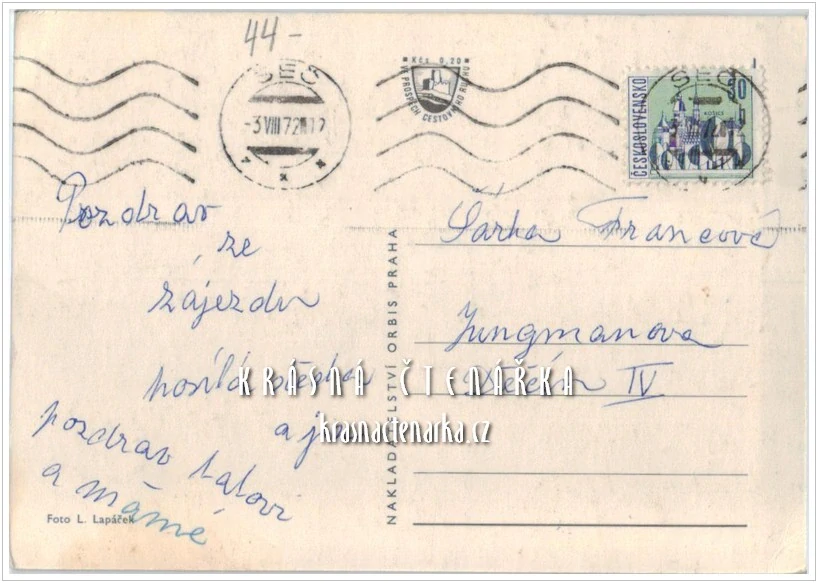 44-
SEČ
-3.VIII.72
Kčs 0,20
VE PROSPĚCH CESTOVNÍHO RUCHU
ČESKOSLOVENSKO
30
KOŠICE
SEČ
Pozdrav
ze
zájezdu
posílá
a
pozdrav tatovi
a mámě
Foto L. Lapáček
NAKLADATELSTVÍ ORBIS PRAHA
Šárka Francová
Jungmanova
Děčín IV
KRÁSNÁ ČTENÁŘKA
krasnactenarka.cz